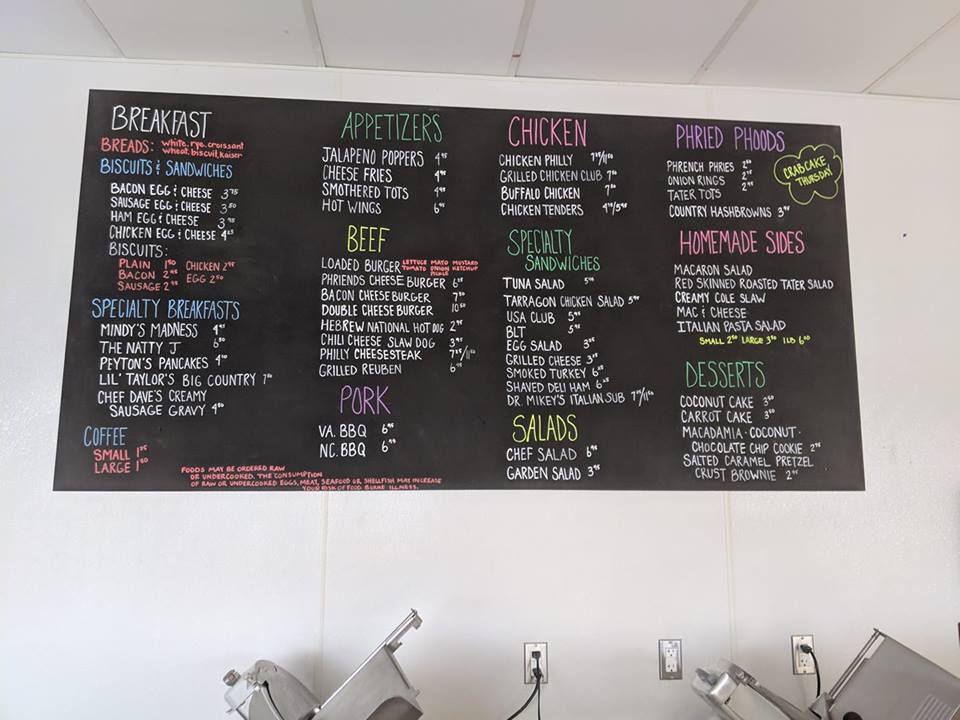 BREAKFAST
BREADS: white, rye, croissant
wheat, biscuit, kaiser
BISCUITS & SANDWICHES
BACON EGG & CHEESE 3.75
SAUSAGE EGG & CHEESE 3.50
HAM EGG & CHEESE
CHICKEN EGG & CHEESE
BISCUITS:
PLAIN CHICKEN
BACON EGG 2.50
SAUSAGE
SPECIALTY BREAKFASTS
MINDY'S MADNESS
THE NATTY J
PEYTON'S PANCAKES
LIL' TAYLOR'S BIG COUNTRY
CHEF DAVE'S CREAMY
SAUSAGE GRAVY
COFFEE
SMALL
LARGE
FOODS MAY BE ORDERED RAW
OR UNDERCOOKED. THE CONSUMPTION
OF RAW OR UNDERCOOKED EGGS, MEAT, SEAFOOD OR SHELLFISH MAY INCREASE
YOUR RISK OF FOOD BORNE ILLNESS.
APPETIZERS
JALAPENO POPPERS
CHEESE FRIES
SMOTHERED TOTS
HOT WINGS
BEEF
LOADED BURGER LETTUCE MAYO MUSTARD
TOMATO ONION KETCHUP
PICKLE
PHRIENDS CHEESE BURGER
BACON CHEESEBURGER
DOUBLE CHEESEBURGER
HEBREW NATIONAL HOT DOG
CHILI CHEESE SLAW DOG
PHILLY CHEESESTEAK
GRILLED REUBEN
PORK
VA. BBQ
NC. BBQ
CHICKEN
CHICKEN PHILLY
GRILLED CHICKEN CLUB
BUFFALO CHICKEN
CHICKEN TENDERS
SPECIALTY
SANDWICHES
TUNA SALAD
TARRAGON CHICKEN SALAD
USA CLUB
BLT
EGG SALAD
GRILLED CHEESE
SMOKED TURKEY
SHAVED DELI HAM
DR. MIKEY'S ITALIAN SUB
SALADS
CHEF SALAD
GARDEN SALAD
PHRIED PHOODS
PHRENCH PHRIES
ONION RINGS
TATER TOTS
COUNTRY HASHBROWNS
CRABCAKE
THURSDAY
HOMEMADE SIDES
MACARON SALAD
RED SKINNED ROASTED TATER SALAD
CREAMY COLE SLAW
MAC & CHEESE
ITALIAN PASTA SALAD
SMALL LARGE 1 LB
DESSERTS
COCONUT CAKE
CARROT CAKE
MACADAMIA · COCONUT ·
CHOCOLATE CHIP COOKIE
SALTED CARAMEL PRETZEL
CRUST BROWNIE